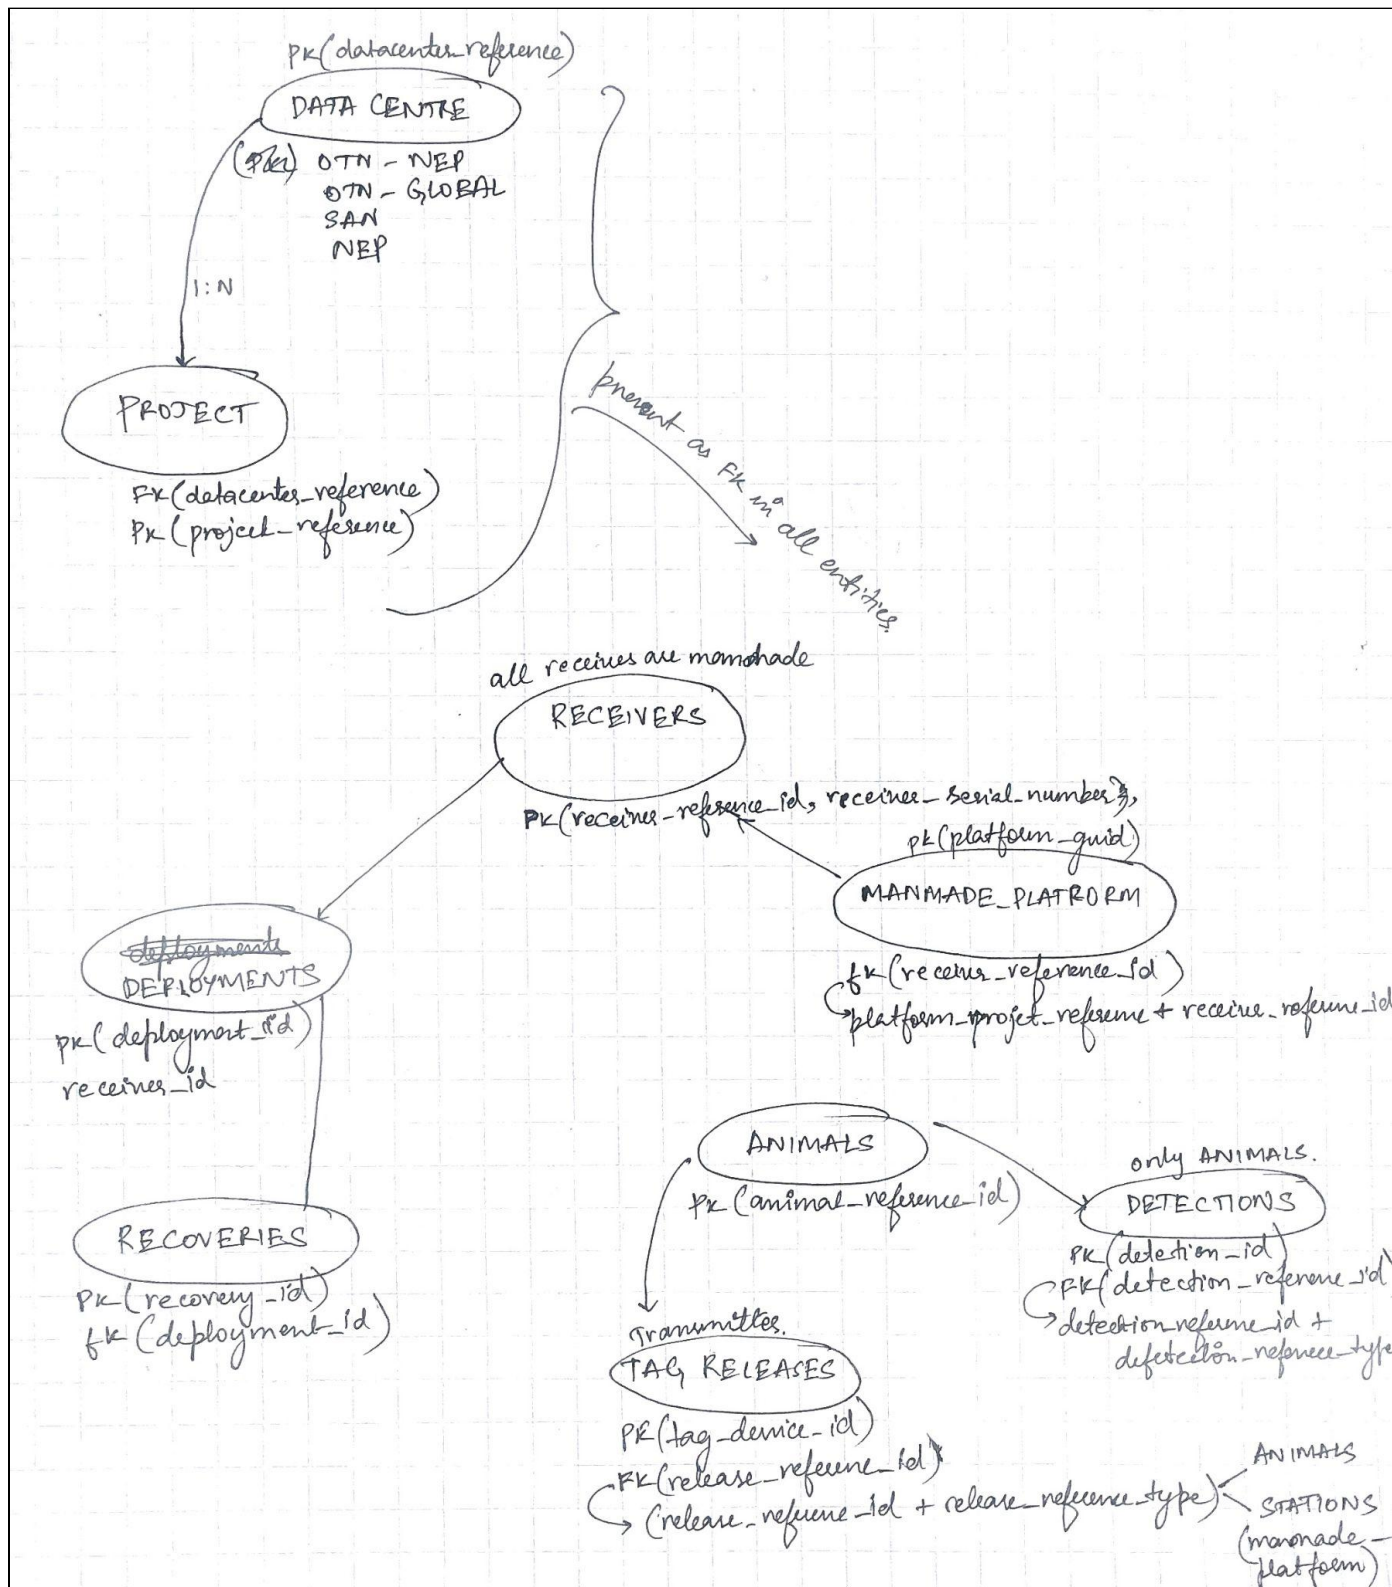 PK(datacenter_reference)
DATA CENTRE
OTN - NEP
OTN - GLOBAL
SAN
NEP
1:N
PROJECT
FK(datacenter_reference)
PK(project_reference)
present as FK in all entities.
all receives are manmade
RECEIVERS
PK(receiver_reference_id, receiver_serial_number),
pk(platform_guid)
MANMADE_PLATRORM
fk(receiver_reference_id)
platform_projet_reference + receiver_reference_id
deployments
DEPLOYMENTS
pk(deployment_id)
receiver_id
ANIMALS
PK(animal_reference_id)
only ANIMALS.
DETECTIONS
PK(detection_id)
FK(detection_reference_id)
detection_reference_id +
detection_reference_type
RECOVERIES
PK(recovery_id)
fk(deployment_id)
Transmittes.
TAG RELEASES
PK(tag_device_id)
FK(release_reference_id)
(release_reference_id + release_reference_type)
ANIMALS
STATIONS
(manmade_
platform)